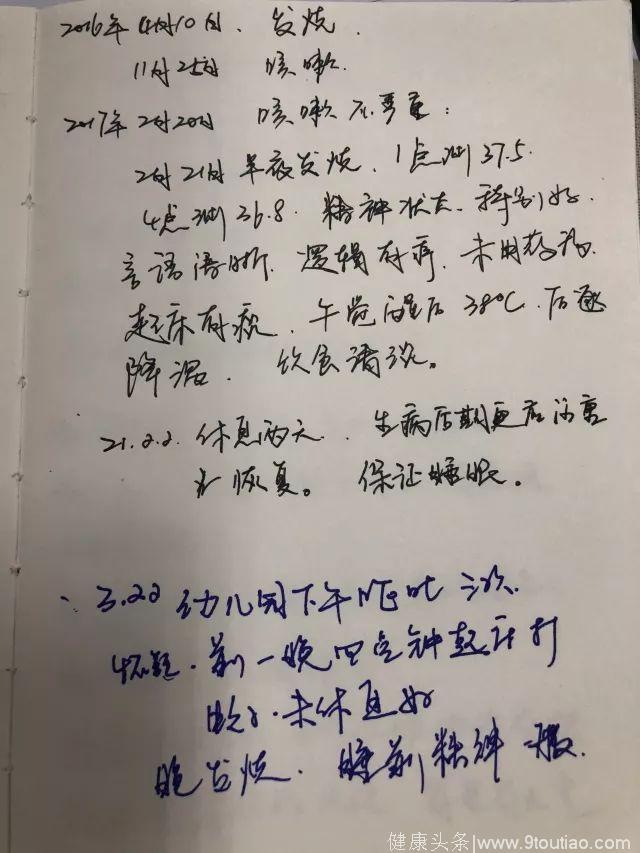 2016年4月10日、发烧.
11月25日 咳嗽.
2017年2月20日 咳嗽不严重;
2月21日 半夜发烧、1点测37.5.
4点测36.8. 精神状态、特别好.
言语清晰. 逻辑有序. 未用药物.
起床有痰、午觉醒后38℃.后逐
降温. 饮食清淡。
21.22. 休息两天. 生病后期更应注重
恢复。 保证睡眠。
3.22 幼儿园下午呕吐三次.
怀疑.前一晚四点钟起床打
未休息好
晚发烧. 睡前精神一般.
健康头条|www.9toutiao.com